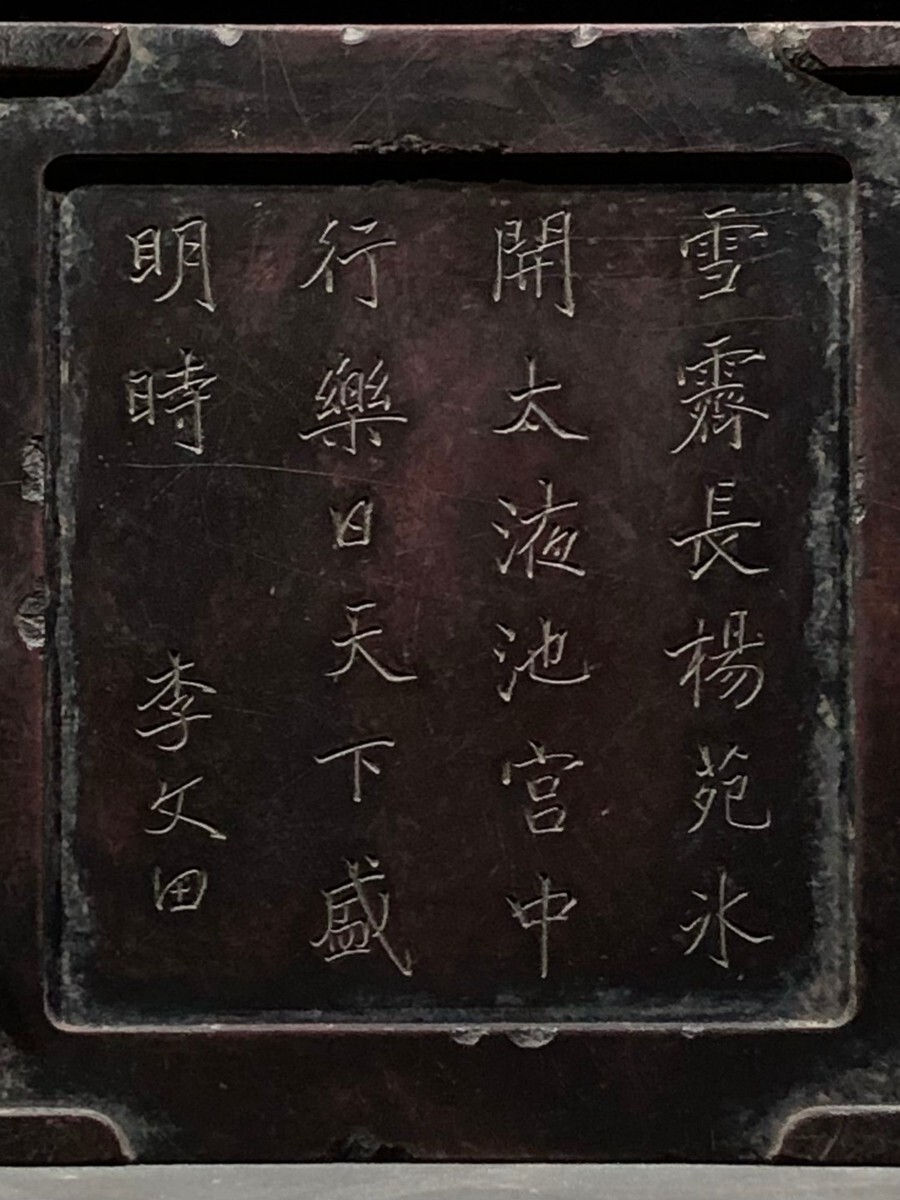 雪霽長楊苑氷
開太液池宮中
行樂日天下盛
明時 李文田